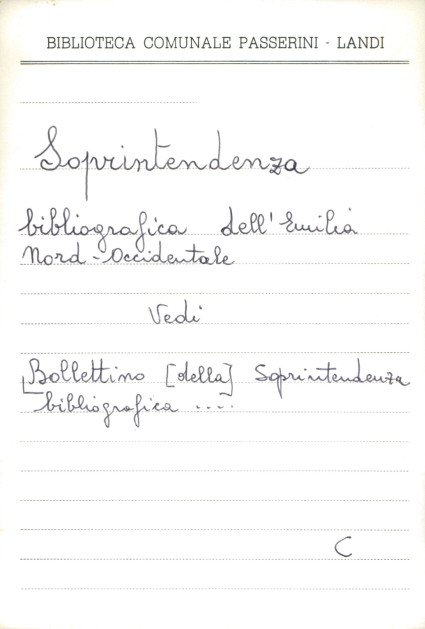 BIBLIOTECA COMUNALE PASSERINI - LANDI
Soprintendenza
bibliografica dell'Emilia
Nord-Occidentale
Vedi
Bollettino [della] Soprintendenza
bibliografica ....
C